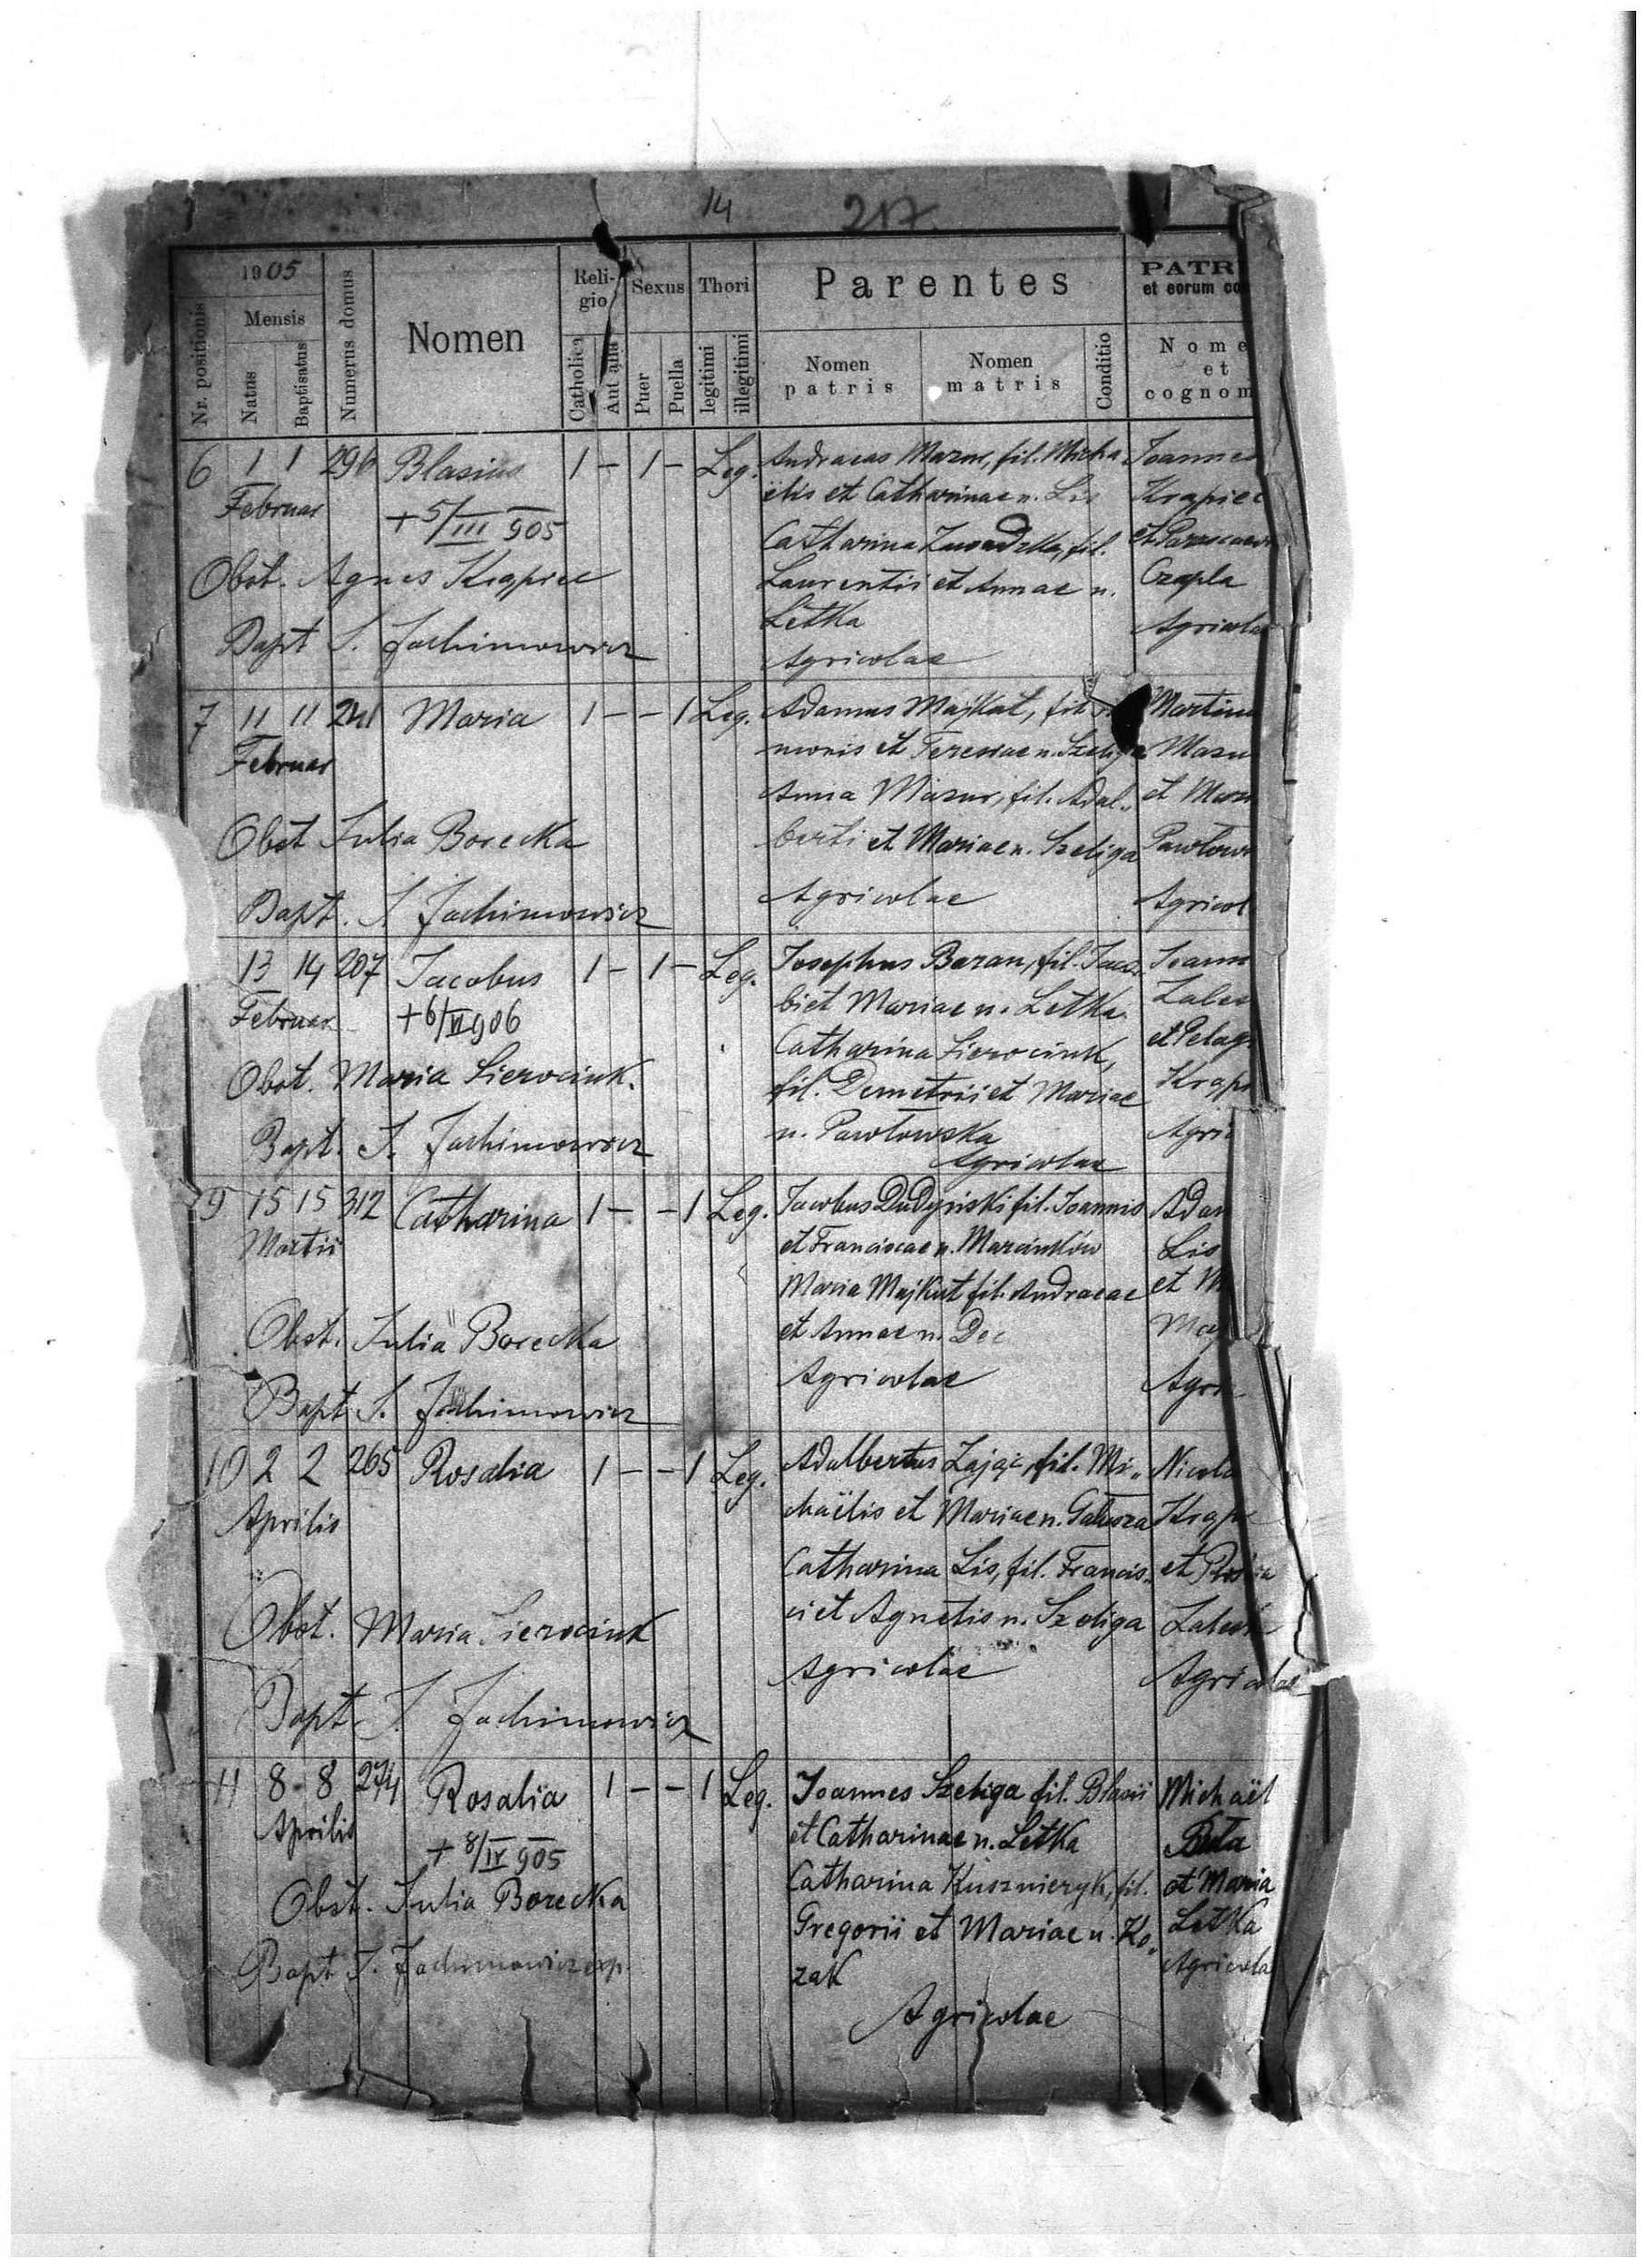 14 217.
1905
Nr. positionis
Mensis
Natus
Baptisatus
Numerus domus
Nomen
Reli-
gio
Catholica
Aut alia
Sexus
Puer
Puella
Thori
legitimi
illegitimi
Parentes
Nomen
patris
Nomen
matris
Conditio
PATR
et eorum co
Nome
et
cognom
6 1 1 296 Blasius 1 - 1 - Leg.
Februar
+ 5/III 905
Obst. Agnes Krapiec
Bapt S. Jachimowicz
Andraeas Mazur, fil. Micha
ëlis et Catharinae n. Lis
Catharina Zawadzka, fil.
Laurentii et Annae n.
Letka
Agricolae
Joannes
Krapiec
et
Czapla
Agricolae
7 11 11 241 Maria 1 - - 1 Leg.
Februar
Obst Julia Borecka
Bapt. S Jachimowicz
Adamus Majkut, fil.
monis et Teresiae n. Szeliga
Anna Mazur, fil. Adal„
berti et Mariae n. Szeliga
Agricolae
Martinu
Mazu
et Mar
Pawłow
Agricol
13 14 207 Jacobus 1 - 1 - Leg.
Februar
+ 6/VI 906
Obst. Maria Sierociuk.
Bapt. S. Jachimowicz
Josephus Baran, fil. Jaco„
bi et Mariae n. Letka
Catharina Sierociuk,
fil. Demetrii et Mariae
n. Pawłowska
Agricolae
Joann
Zales
et Pelag
Krapi
Agri
9 15 15 312 Catharina 1 - - 1 Leg.
Martii
Obst. Julia Borecka
Bapt S. Jachimowicz
Jacobus Dudyński fil. Joannis
et Franciscae n. Marcinków
Maria Majkut fil. Andraeae
et Annae n. Dec
Agricolae
Adam
Lis
et M
Maj
Agri
10 2 2 265 Rosalia 1 - - 1 Leg.
Aprilis
Obst. Maria Sierociuk
Bapt S Jachimowicz
Adalbertus Zając, fil. Mi„
chaëlis et Mariae n. Galusza
Catharina Lis, fil. Francis„
ci et Agnetis n. Szeliga
Agricolae
Nicola
Krapi
et
Agricolae
11 8 - 8 274 Rosalia 1 - - 1 Leg.
Aprilis
+ 8/IV 905
Obst. Julia Borecka
Bapt S. Jachimowicz exp.
Joannes Szeliga fil. Blasii
et Catharinae n. Letka
Catharina Kusznieryk, fil.
Gregorii et Mariae n. Ko„
zak
Agricolae
Michaël
Buta
et Maria
Letka
Agricola